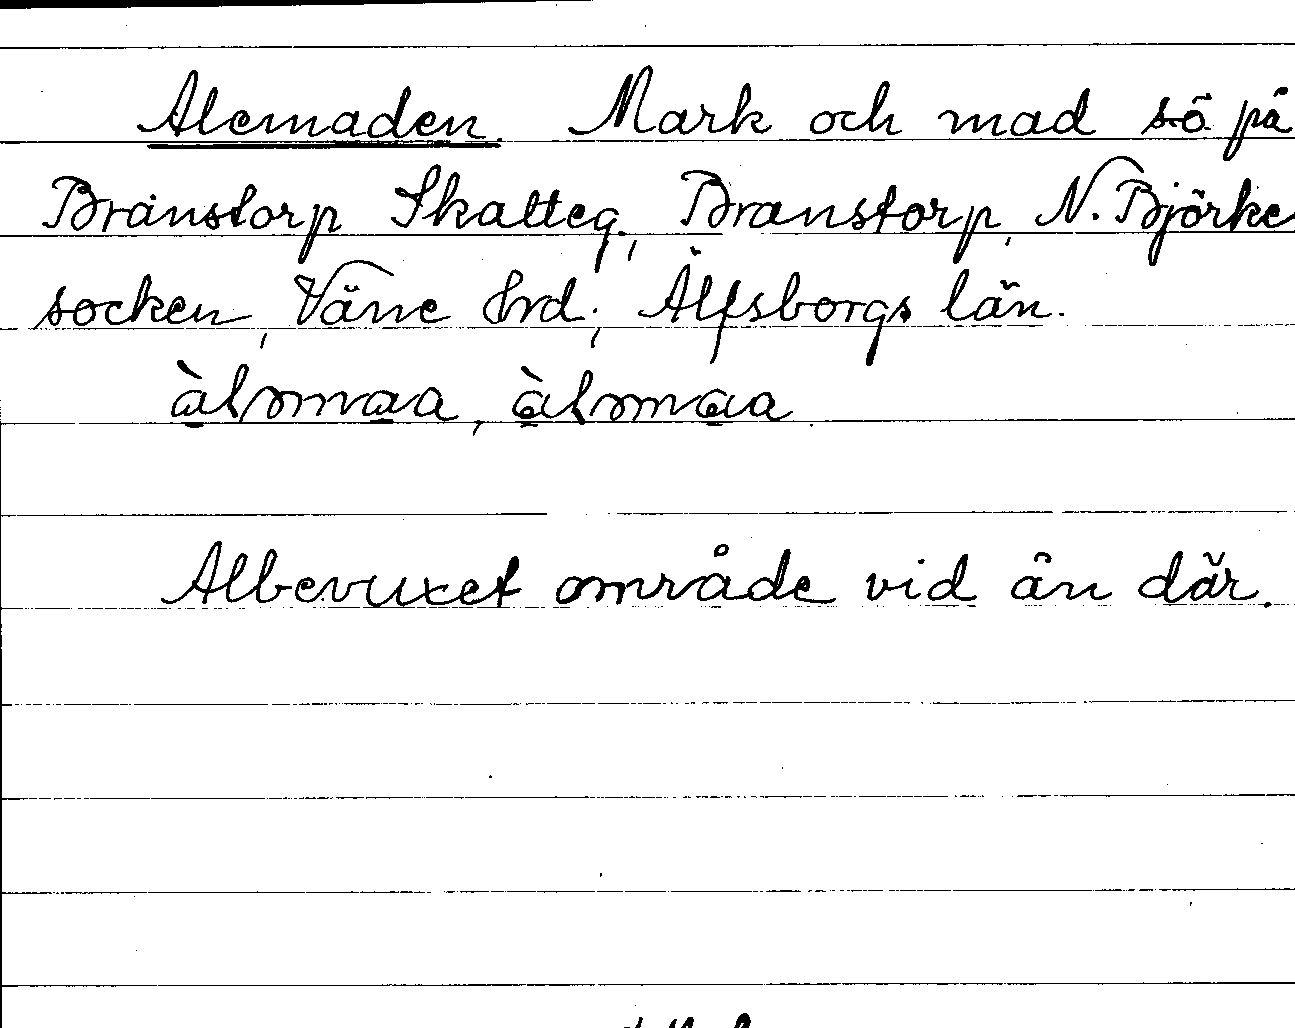 Alemaden. Mark och mad sö på
Branstorp Skatteg., Branstorp, N. Björke
socken, Väne hrd., Älfsborgs län.
Albevuxet område vid ån där.